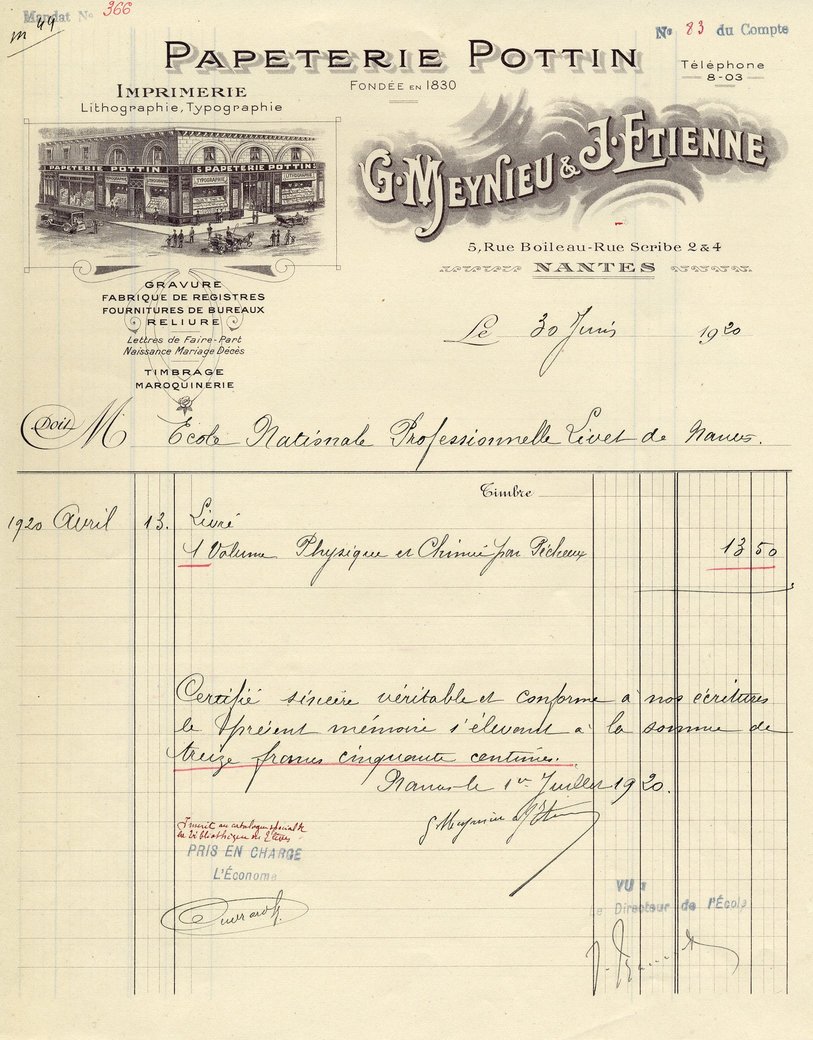 Mandat No 366
m 49
No 83 du Compte
PAPETERIE POTTIN
FONDÉE EN 1830
Téléphone
8-03
IMPRIMERIE
Lithographie, Typographie
PAPETERIE POTTIN
5 PAPETERIE POTTIN
TYPOGRAPHIE
LITHOGRAPHIE
G. MEYNIEU & J. ETIENNE
5, Rue Boileau-Rue Scribe 2 & 4
NANTES
GRAVURE
FABRIQUE DE REGISTRES
FOURNITURES DE BUREAUX
RELIURE
Lettres de Faire-Part
Naissance Mariage Décès
TIMBRAGE
MAROQUINERIE
Le 30 Juin 1920
Doit M École Nationale Professionnelle Livet de Nantes.
Timbre
1920 Avril 13. Livré
1 Volume Physique et Chimie par Pécheux 13 50
Certifié sincère véritable et conforme à nos écritures
le présent mémoire s'élevant à la somme de
treize francs cinquante centimes.
Nantes le 1er Juillet 1920.
G Meynieu & J Etienne
Inscrit au catalogue spécial
des Bibliothèques des Elèves
PRIS EN CHARGE
L'Économe
VU :
Le Directeur de l'École